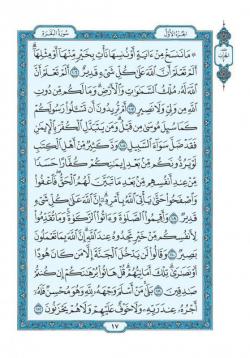 سُورَةُ البَقَرَةِ
الجُزْءُ الأَوَّلُ
مَا نَنسَخْ مِنْ ءَايَةٍ أَوْ نُنسِهَا نَأْتِ بِخَيْرٍ مِّنْهَا أَوْ مِثْلِهَا
أَلَمْ تَعْلَمْ أَنَّ اللَّهَ عَلَىٰ كُلِّ شَىْءٍ قَدِيرٌ ١٠٦ أَلَمْ تَعْلَمْ أَنَّ
اللَّهَ لَهُ مُلْكُ السَّمَاوَاتِ وَالْأَرْضِ وَمَا لَكُم مِّن دُونِ
اللَّهِ مِن وَلِىٍّ وَلَا نَصِيرٍ ١٠٧ أَمْ تُرِيدُونَ أَن تَسْأَلُوا رَسُولَكُمْ
كَمَا سُئِلَ مُوسَىٰ مِن قَبْلُ وَمَن يَتَبَدَّلِ الْكُفْرَ بِالْإِيمَانِ
فَقَدْ ضَلَّ سَوَاءَ السَّبِيلِ ١٠٨ وَدَّ كَثِيرٌ مِّنْ أَهْلِ الْكِتَابِ
لَوْ يَرُدُّونَكُم مِّن بَعْدِ إِيمَانِكُمْ كُفَّارًا حَسَدًا
مِّنْ عِندِ أَنفُسِهِم مِّن بَعْدِ مَا تَبَيَّنَ لَهُمُ الْحَقُّ فَاعْفُوا
وَاصْفَحُوا حَتَّىٰ يَأْتِىَ اللَّهُ بِأَمْرِهِ إِنَّ اللَّهَ عَلَىٰ كُلِّ شَىْءٍ
قَدِيرٌ ١٠٩ وَأَقِيمُوا الصَّلَوٰةَ وَءَاتُوا الزَّكَوٰةَ وَمَا تُقَدِّمُوا
لِأَنفُسِكُم مِّنْ خَيْرٍ تَجِدُوهُ عِندَ اللَّهِ إِنَّ اللَّهَ بِمَا تَعْمَلُونَ
بَصِيرٌ ١١٠ وَقَالُوا لَن يَدْخُلَ الْجَنَّةَ إِلَّا مَن كَانَ هُودًا
أَوْ نَصَارَىٰ تِلْكَ أَمَانِيُّهُمْ قُلْ هَاتُوا بُرْهَانَكُمْ إِن كُنتُمْ
صَادِقِينَ ١١١ بَلَىٰ مَنْ أَسْلَمَ وَجْهَهُ لِلَّهِ وَهُوَ مُحْسِنٌ فَلَهُ
أَجْرُهُ عِندَ رَبِّهِ وَلَا خَوْفٌ عَلَيْهِمْ وَلَا هُمْ يَحْزَنُونَ ١١٢
١٧